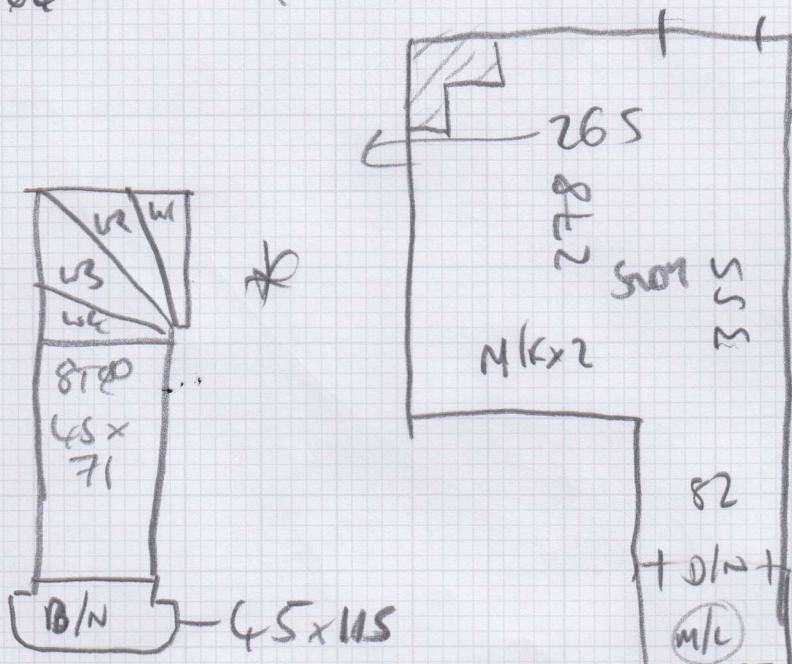 W2 W1
W3
W4
8TRD
45 x
71
B/N
45 x 115
265
278
355
M/K x 2
82
D/N
M/L